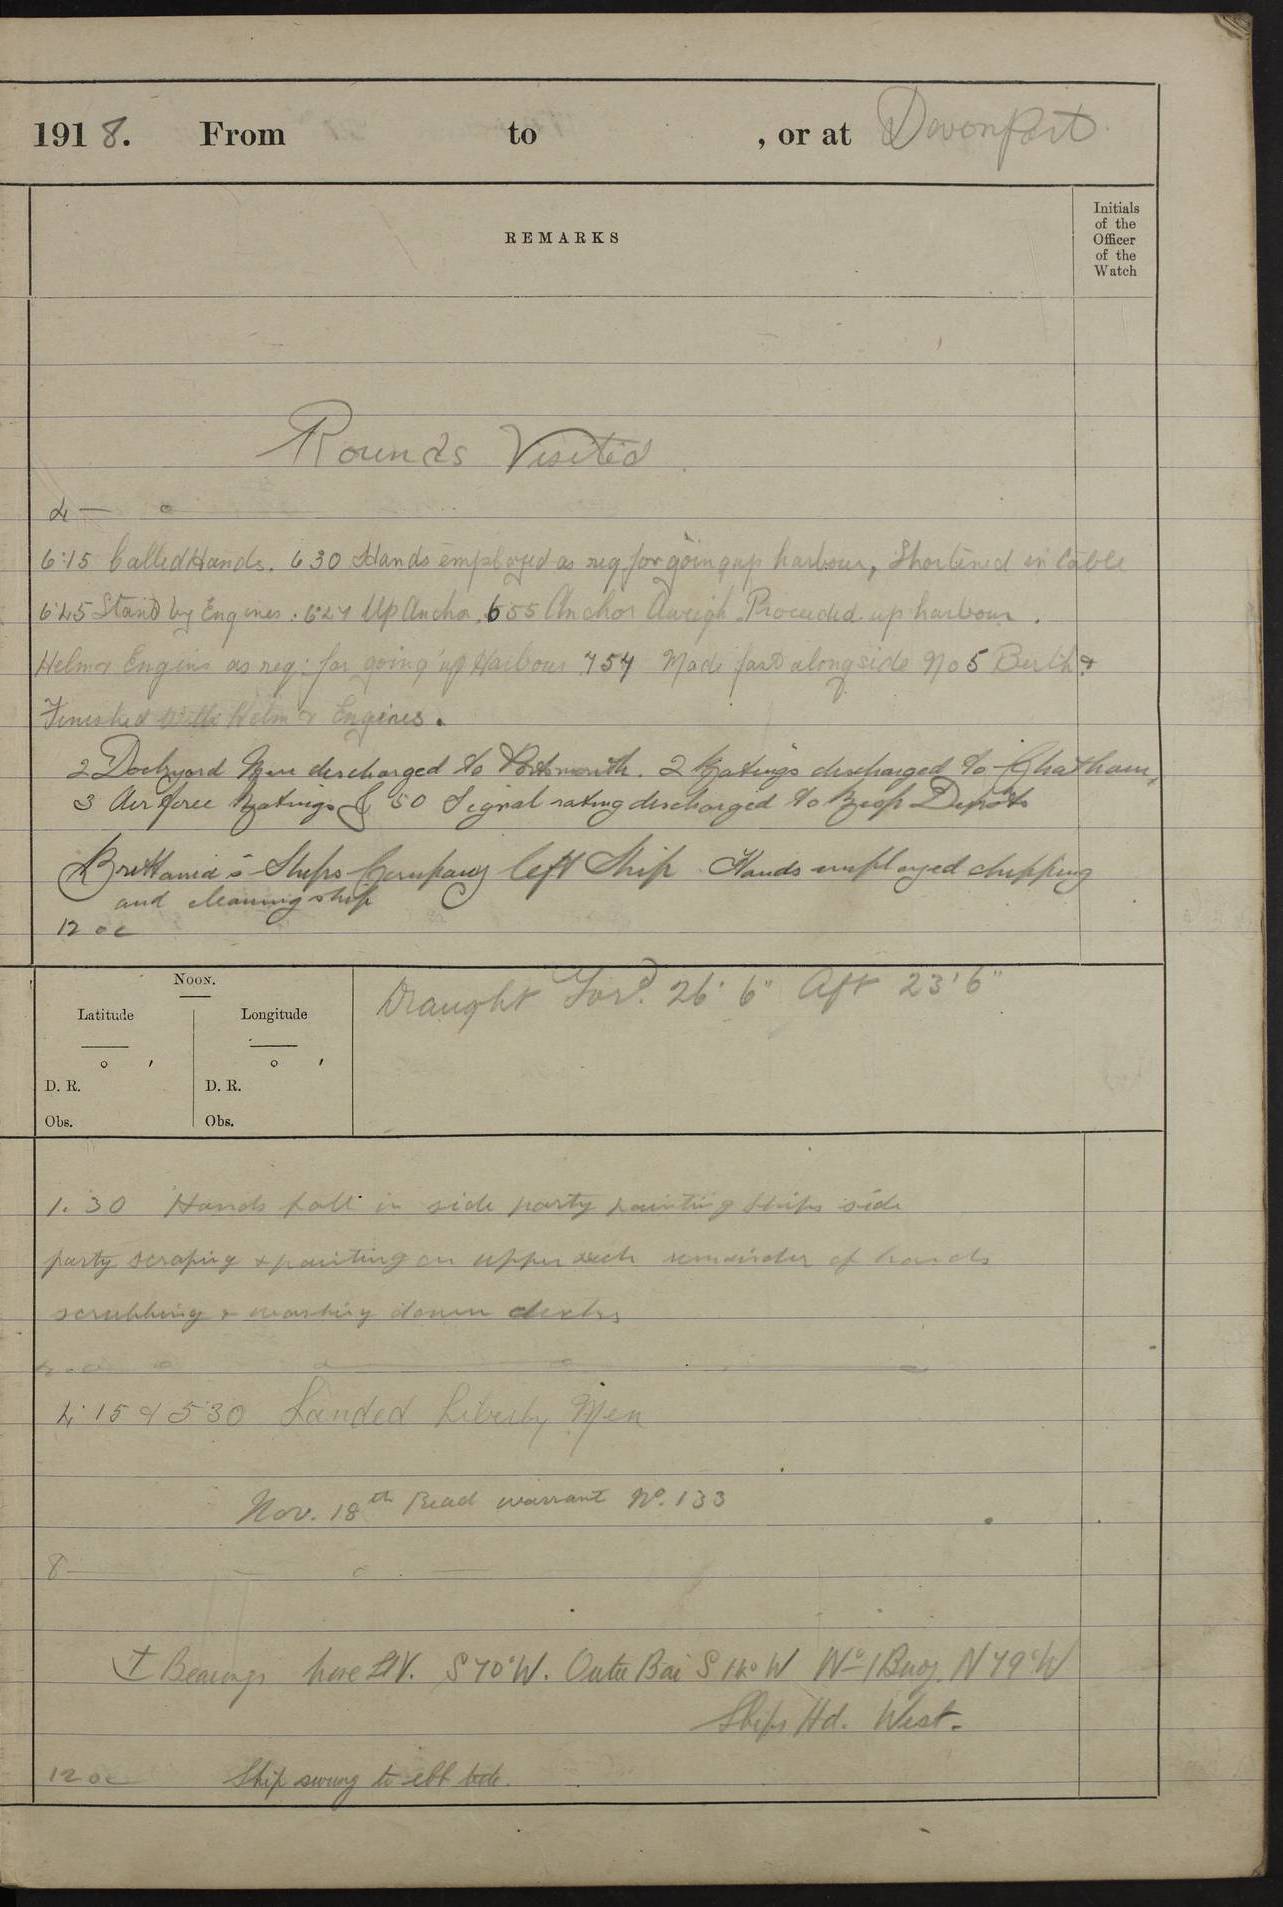 1918. From to , or at Devonport
REMARKS
Initials
of the
Officer
of the
Watch
Rounds Visited
4 —
6.15 Called Hands. 6 30 Hands employed as req. for going up harbour, Shortened in Cable
6.45 Stand by Engines. Up Anchor, 6 55 Anchor Aweigh. Proceeded up harbour.
Helm & Engins as req. for going up Harbour 7 57 Made fast alongside No 5 Berth &
Finished with Helm & Engines.
2 Dockyard Men discharged to Portsmouth. 2 Ratings discharged to Chatham,
3 Air force Ratings & 50 Signal rating discharged to Depots
Brittania's Ships Company left Ship Hands employed chipping
and cleaning ship
12 oc
Noon.
Latitude Longitude
° ′ ° ′
D. R. D. R.
Obs. Obs.
Draught For'd. 26' 6" Aft 23' 6"
1.30 Hands fall in side party painting Ships side
party scraping & painting on upper deck remainder of hands
scrubbing & washing down decks
4.15 & 5 30 Landed Liberty Men
Nov. 18th Read warrant No. 133
8
Bearings S 70° W. Outer S W No 1 Buoy. N 79° W
Ships Hd. West.
12 oc Ship swung to ebb tide.